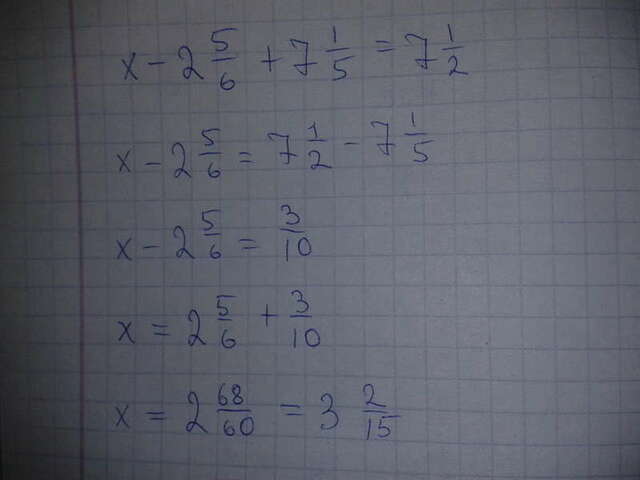 x - 2 5/6 + 7 1/5 = 7 1/2
x - 2 5/6 = 7 1/2 - 7 1/5
x - 2 5/6 = 3/10
x = 2 5/6 + 3/10
x = 2 68/60 = 3 2/15